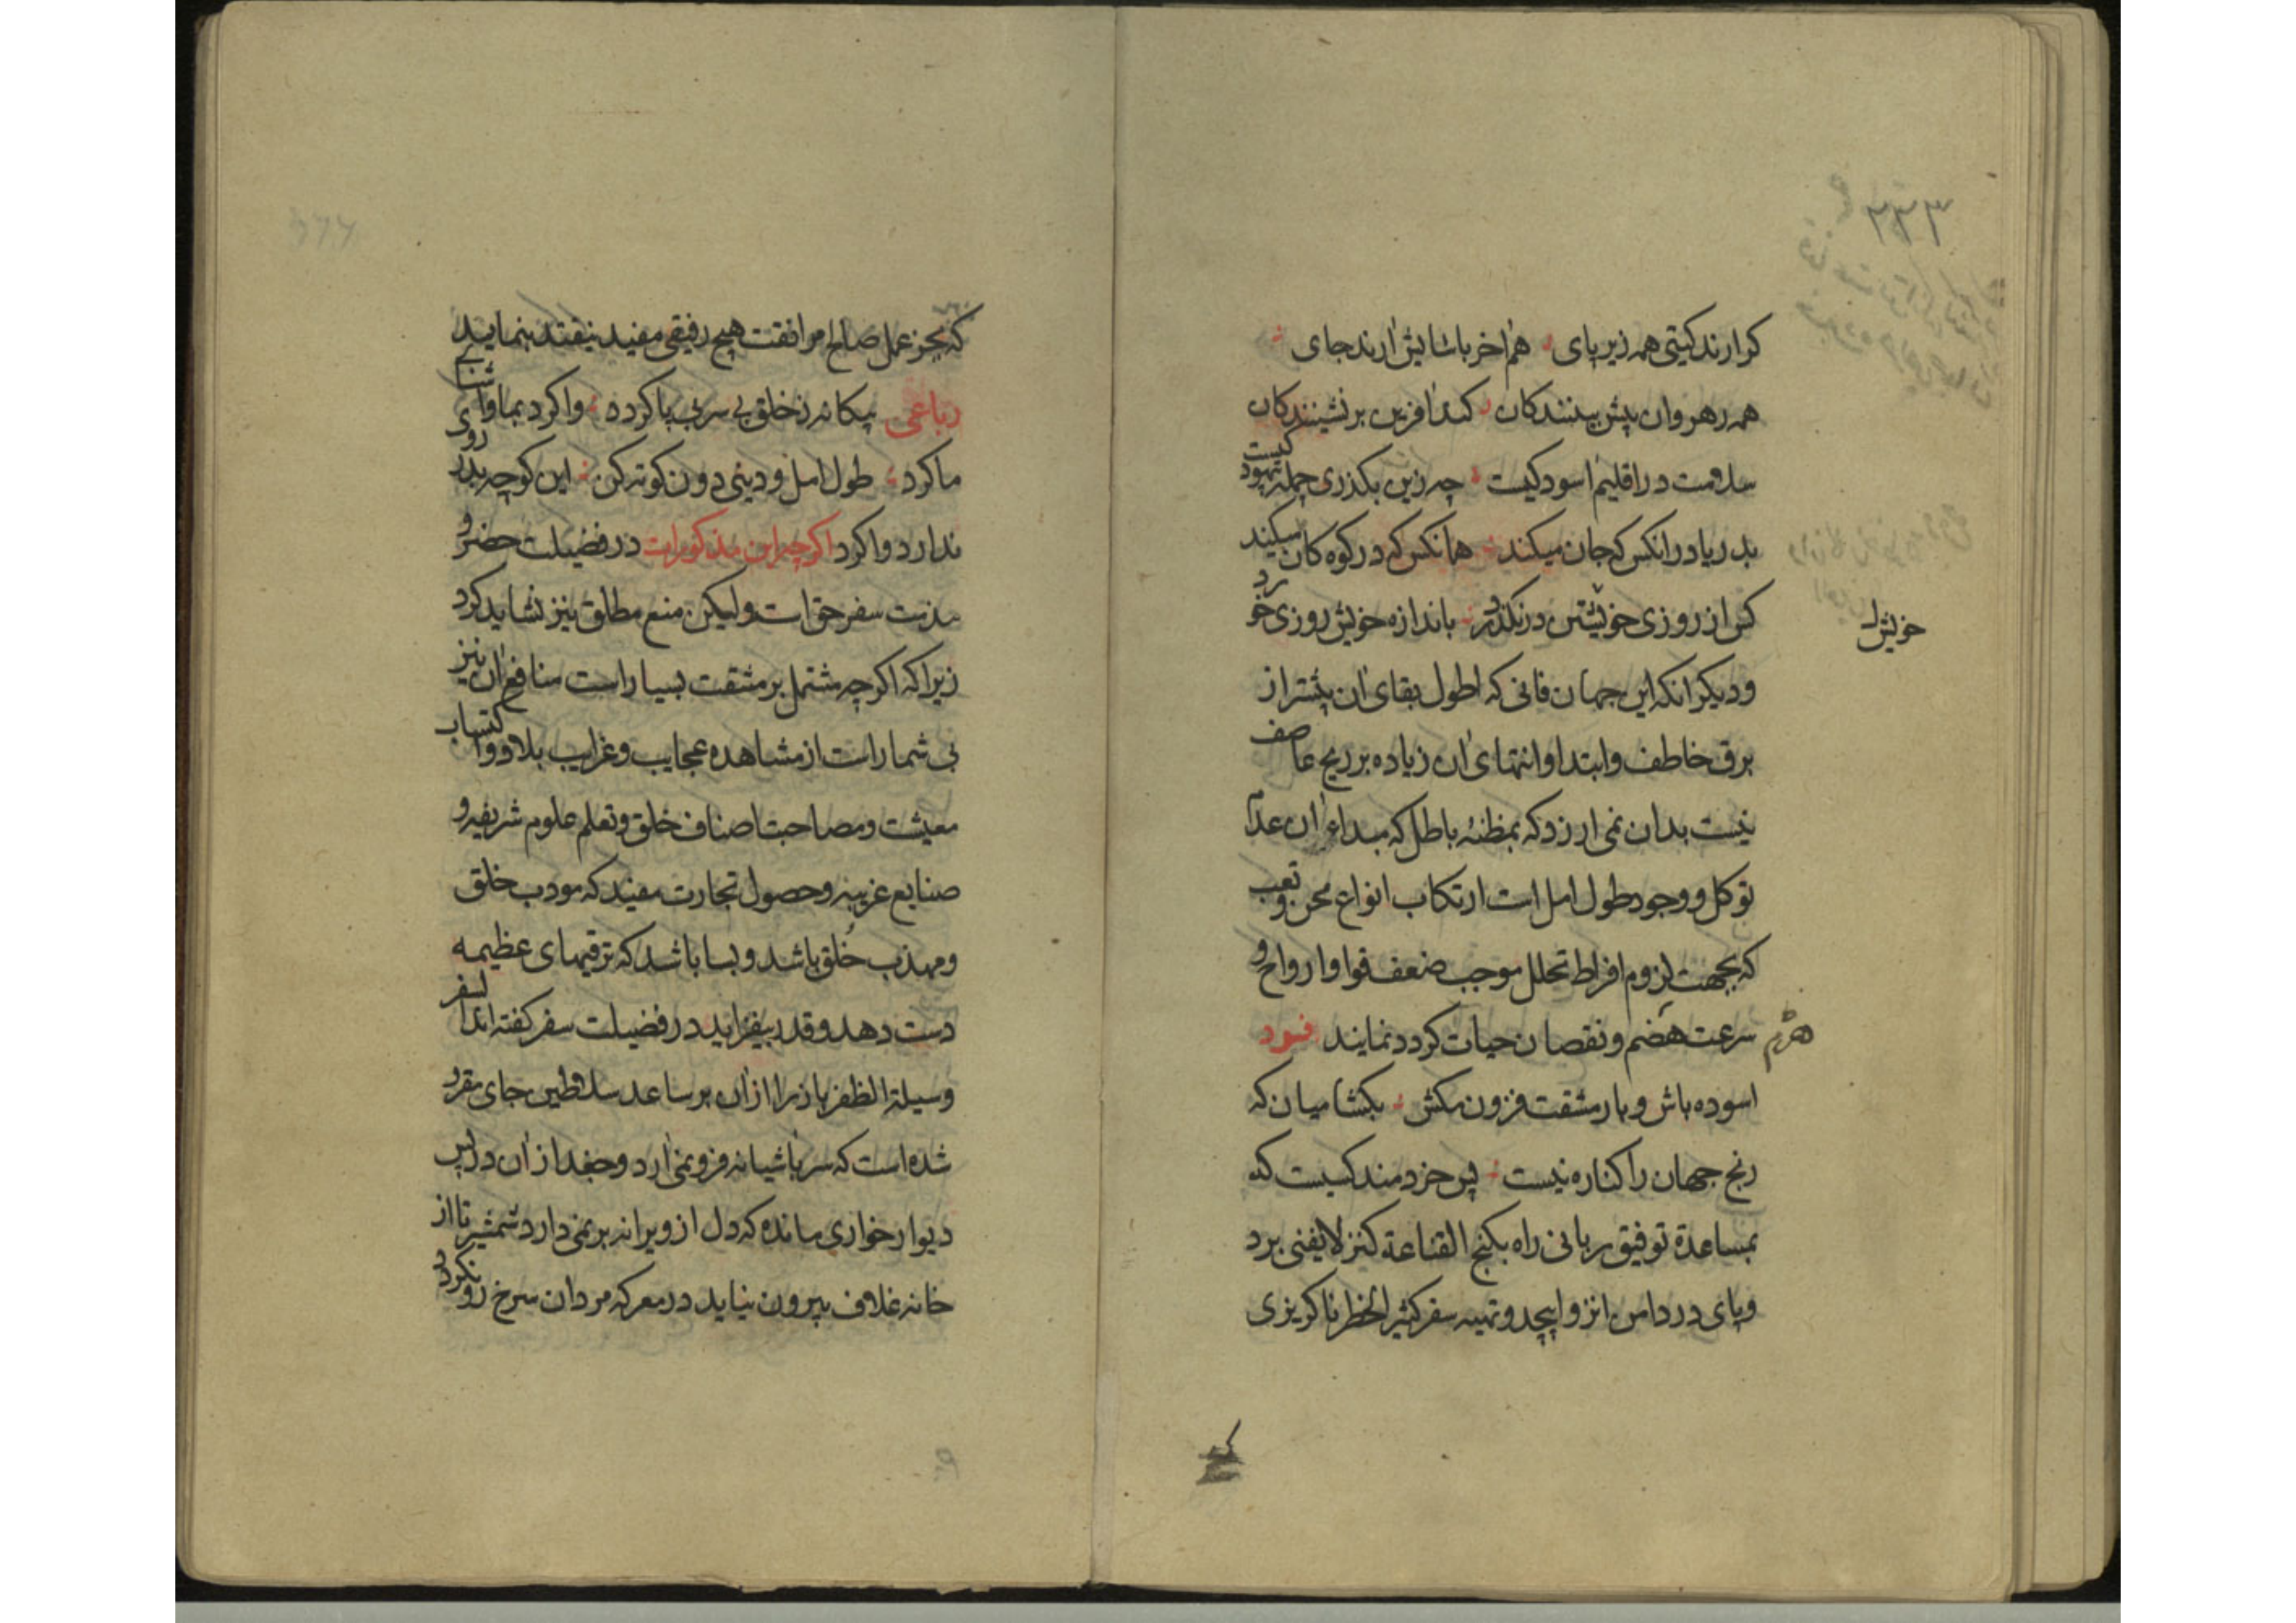 ۲۳۳
کر ارند کیتی همه زیر پای هم آخر باسایش آرند جای
همه رهروان پیش بینندکان کنند آفرین بر نشینندکان
سلامت در اقلیم اسودکیست چه زین بکذری جمله بیهودکیست
بدریا در انکس که جان میکند همانکس که در کوه کان میکند
کس از روزی خویشتن درنکذرد باندازه خویش روزی خورد
خویش
ودیکر انکه این جهان فانی که اطول بقای آن بیشتر از
برق خاطف وابتدا وانتهای آن زیاده بر ریح عاصف
نیست بدان نمی ارزد که بمظنه باطل که مبداء آن عدم
توکل ووجود طول امل است ارتکاب انواع محن وتعب
که بجهت لزوم افراط تحلل موجب ضعف قوا وارواح و
سرعت هضم ونقصان حیات کردد نمایند فرد
هرم
اسوده باش وبار مشقت فزون مکش بکشا میان که
رنج جهان را کناره نیست پس خردمند کسیست که
بمساعدة توفیق ربانی راه بکنج القناعة کنز لا یفنی برد
وپای در دامن انزوا پیچد وتهیه سفر کثیر الخطر ناکزیزی
که بجز عمل صالح مرافقت هیچ رفیقی مفید نیفتد بنماید
رباعی بیکانه زخلق بی سر بی پا کرد وا کرد بما وآشنای
ما کرد طول امل ودینی دون کوته کن این کوچه بدر روی
ندارد وا کرد اکرچه این مذکورات در فضیلت حضر و
مذمت سفر حق است ولیکن منع مطلق نیز نشاید کرد
زیرا که اکرچه مشتمل بر مشقت بسیار است منافع آن نیز
بی شمار است از مشاهده عجایب وغرایب بلاد واکتساب
معیشت ومصاحبت اصناف خلق وتعلم علوم شریفه و
صنایع غریبه وحصول تجارت مفید که مودب خلق
ومهذب خُلق باشد وبسا باشد که ترقیهای عظیمه
دست دهد وقدر بیفزاید در فضیلت سفر کفته اند السفر
وسیلة الظفر باز را از آن بر ساعد سلاطین جای مقرر
شده است که سر باشیانه فرو نمی آرد وجغد از آن در پس
دیوار خواری مانده که دل از ویرانه بر نمی دارد شمشیر تا از
خانه غلاف بیرون نیاید در معرکه مردان سرخ رو نکردد